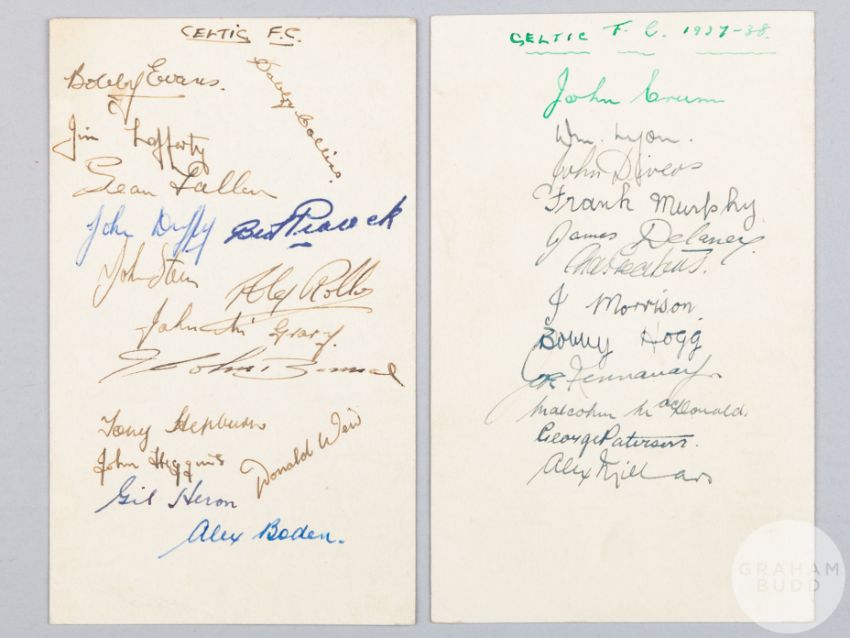 CELTIC F.C.
Bobby Evans.
Bobby Collins.
Jim Lafferty
Sean Fallon
John Duffy
Bert Peacock
John Stein
Alex Rollo
John Mc Grory.
John Bonnar
Tony Hepburn
John Higgins
Donald Weir
Gil Heron
Alex Boden.
CELTIC F. C. 1937-38.
John Crum
Wm. Lyon.
John Divers
Frank Murphy.
James Delaney.
J Morrison.
Bobby Hogg
Joe Kennaway
Malcolm MacDonald.
George Paterson.
Alex Millar
GRAHAM
BUDD